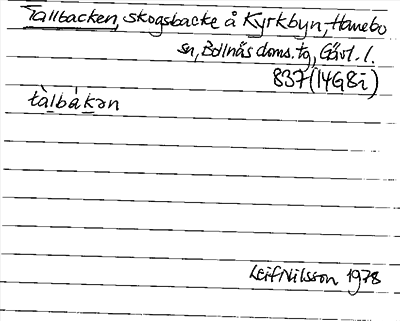 Tallbacken, skogsbacke å Kyrkbyn, Hanebo
sn, Bollnäs doms. tg, Gävl. l.
837 (14G8i)
tàlbákən
Leif Nilsson 1978